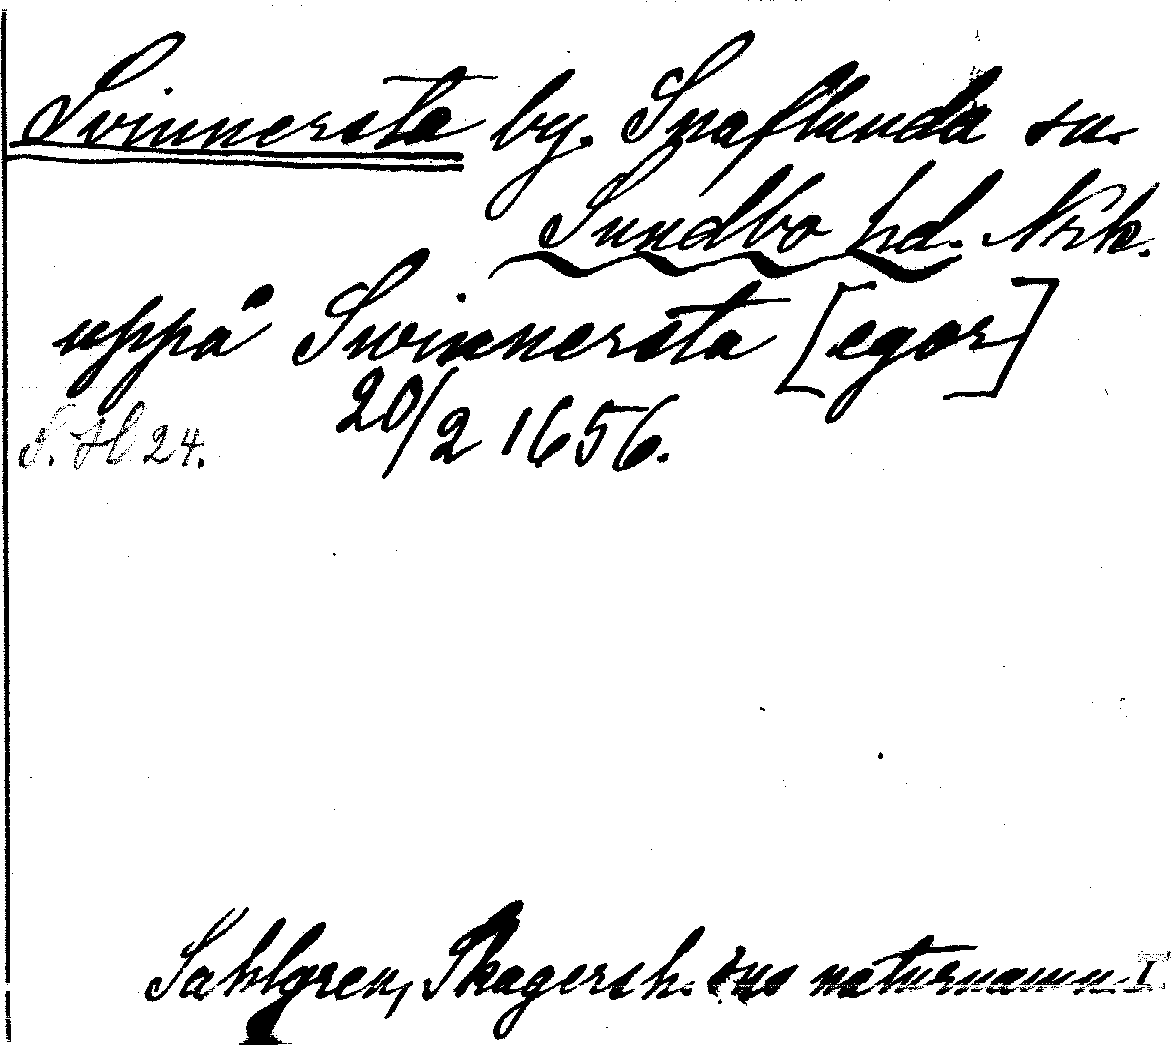 Svinnersta by. Snaflunda sn.
Sundbo hd. Nrk.
uppå Swinnersta [egor]
20/2 1656.
N. H 24.
Sahlgren, Skagersh. sns naturnamn. I.